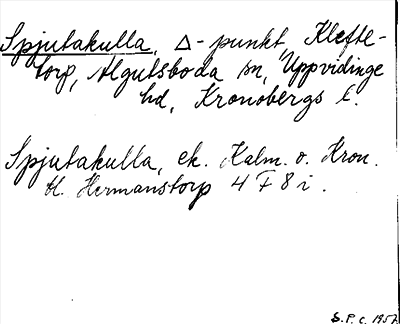 Spjutakulla, Δ-punkt, Klefte-
torp, Algutsboda sn, Uppvidinge
hd, Kronobergs l.
Spjutakulla, ek. Kalm. o. Kron.
bl. Hermanstorp 4 F 8 i.
S.P.C. 1957